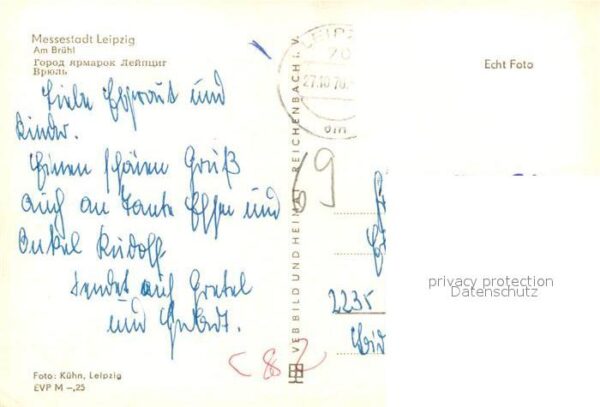 Messestadt Leipzig
Am Brühl
Город ярмарок Лейпциг
Врюль
Liebe und
Kinder.
Einen schönen Gruß
auch an Tante und
Onkel Rudolf.
Sendet auch Gretel
und
Foto: Kühn, Leipzig
EVP M –,25
VEB BILD UND HEIMAT REICHENBACH I. V.
LEIPZ
27.10.70
69
Echt Foto
2235
privacy protection
Datenschutz